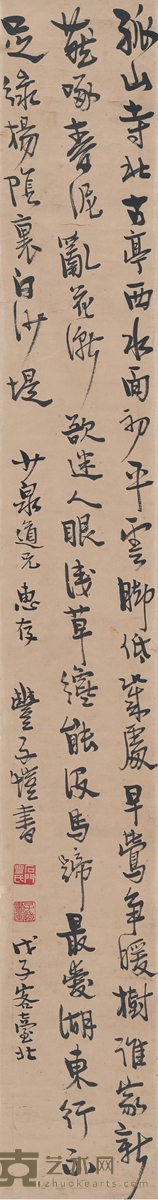 孤山寺北古亭西水面初平雲腳低幾處早鶯爭暖樹誰家新
燕啄春泥亂花漸欲迷人眼淺草纔能沒馬蹄最愛湖東行不
足綠楊陰裏白沙堤 少泉道兄惠存 豐子愷書 戊子客臺北